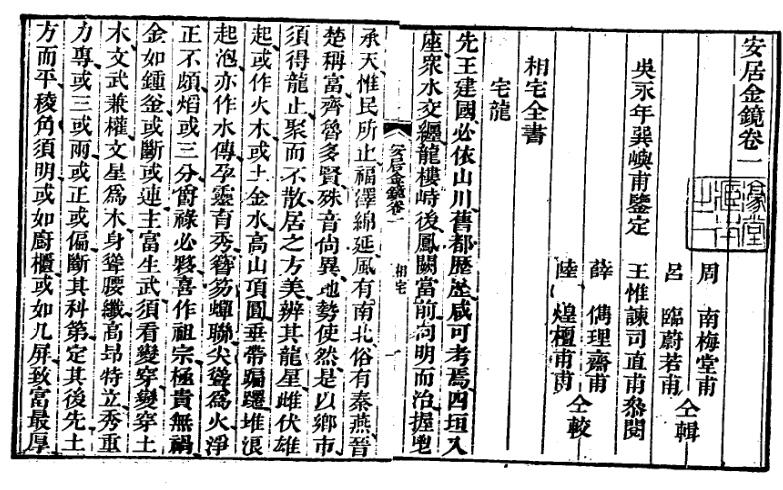 安居金鏡卷一
周 南梅堂甫
呂 臨蔚若甫 仝輯
吳永年巽嶼甫鑒定 王惟諫司直甫叅閱
薛 儁理齋甫
陸 煌檀甫甫 仝較
相宅全書
宅龍
先王建國必依山川舊都歷歷咸可考焉四垣入
座衆水交纏龍樓峙後鳳闕當前向明而治握乾
安居金鏡卷一 相宅 一
承天惟民所止福澤綿延風有南北俗有秦燕晉
楚稱富齊魯多賢殊音尙異地勢使然是以鄉市
須得龍止聚而不散居之方美辨其龍星雌伏雄
起或作火木或土金水高山頂圓垂帶蹁躚堆浪
起泡亦作水傳孕靈育秀簪笏蟬聯尖聳爲火淨
正不頗焰或三分爵祿必夥喜作祖宗極貴無禍
金如鍾釜或斷或連主富生武須看變穿變穿土
木文武兼權文星爲木身聳腰纖高昂特立秀重
力專或三或兩或正或偏斷其科第定其後先土
方而平稜角須明或如廚櫃或如几屏致富最厚